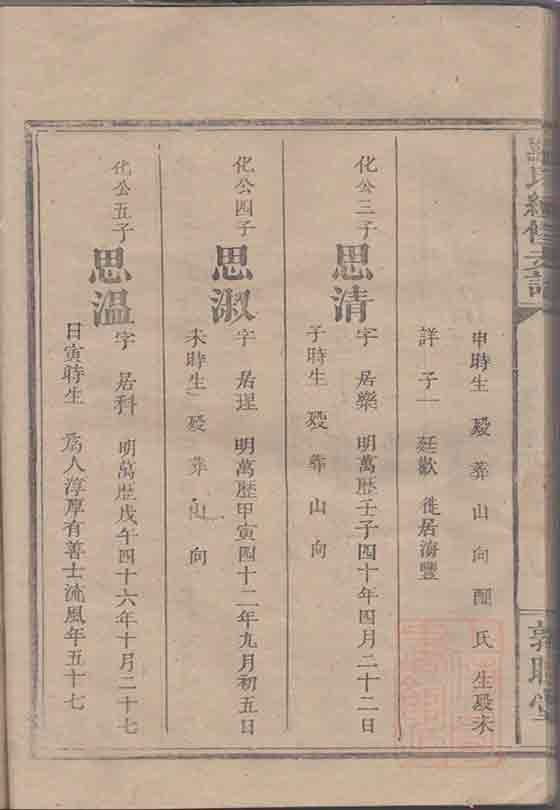 氏續修支譜
申時生 歿 葬 山 向 配 氏 生歿未
詳 子一 廷歡 徙居海豐
化公三子
思清
字 居樂 明萬歷壬子四十年四月二十二日
子時生 歿 葬 山 向
化公四子
思淑
字 居理 明萬歷甲寅四十二年九月初五日
未時生 歿 葬 山 向
化公五子
思溫
字 居科 明萬歷戊午四十六年十月二十七
日寅時生 為人淳厚有善士流風年五十七
敦睦堂